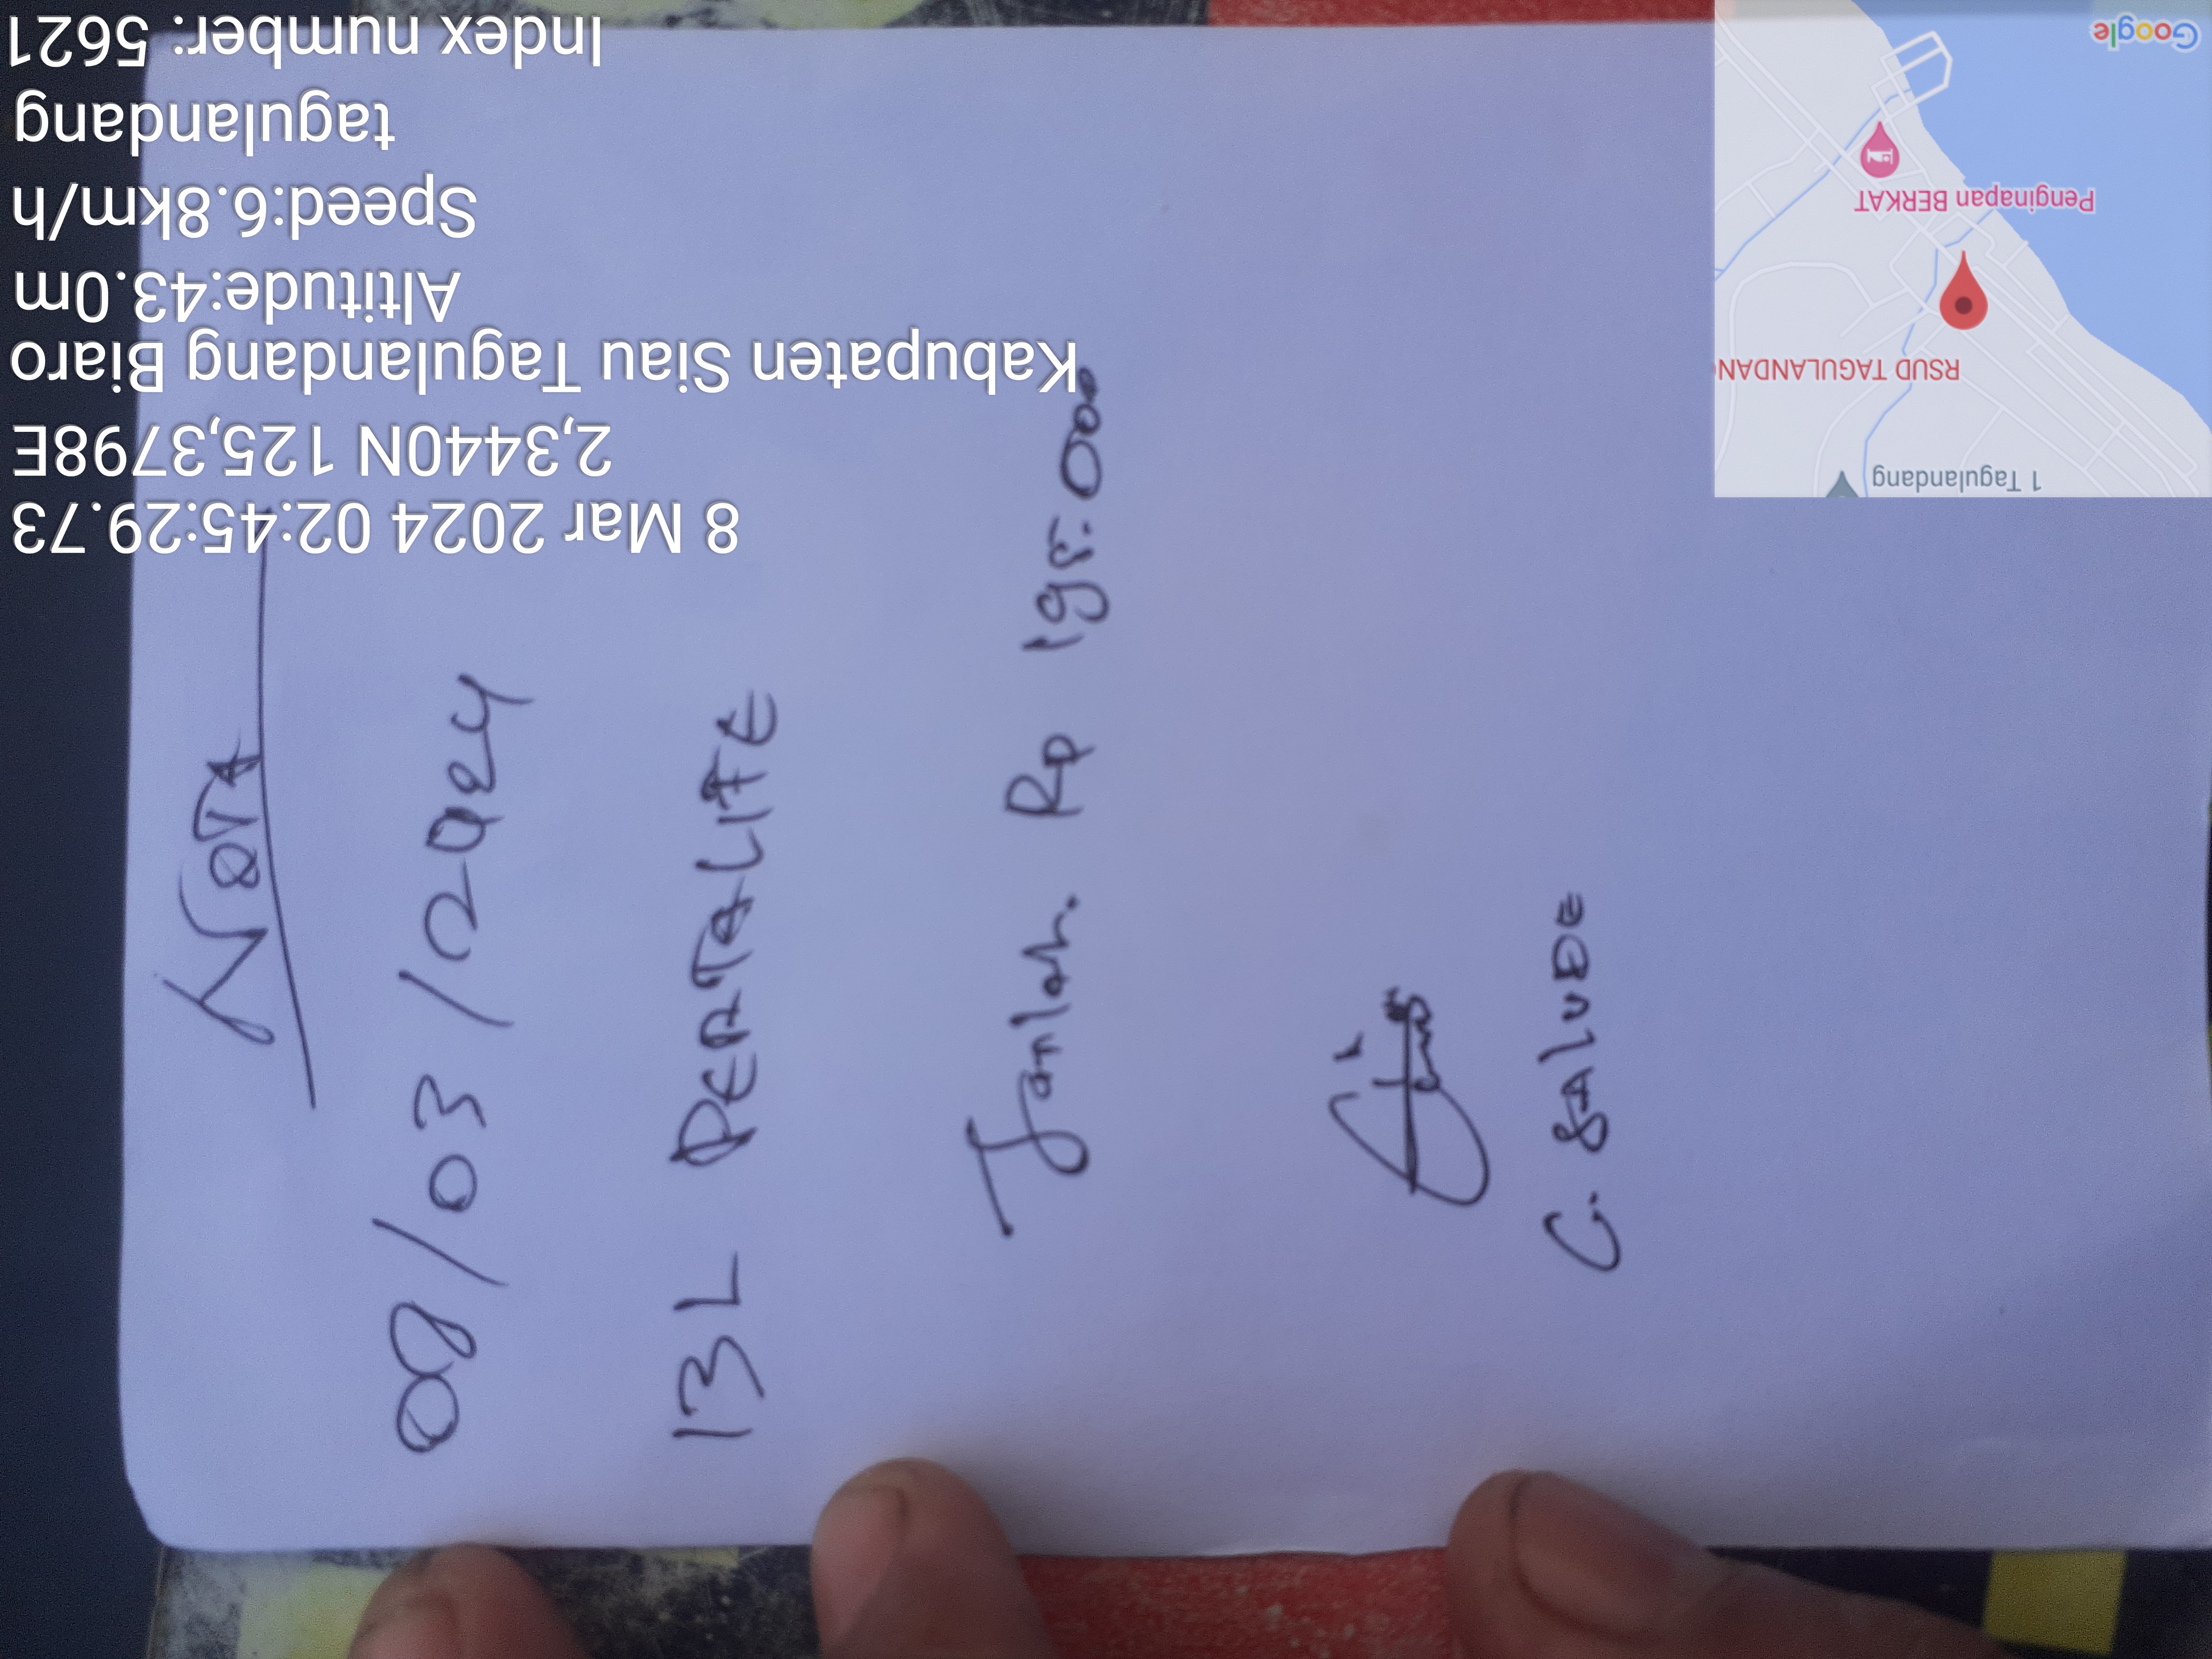 Nota
08/03/2024
13 L PERTALITE
Jumlah. Rp 195.000
C. SALUDE
8 Mar 2024 02:45:29.73
2,3440N 125,3798E
Kabupaten Siau Tagulandang Biaro
Altitude:43.0m
Speed:6.8km/h
tagulandang
Index number: 5621
1 Tagulandang
RSUD TAGULANDANG
Penginapan BERKAT
Google